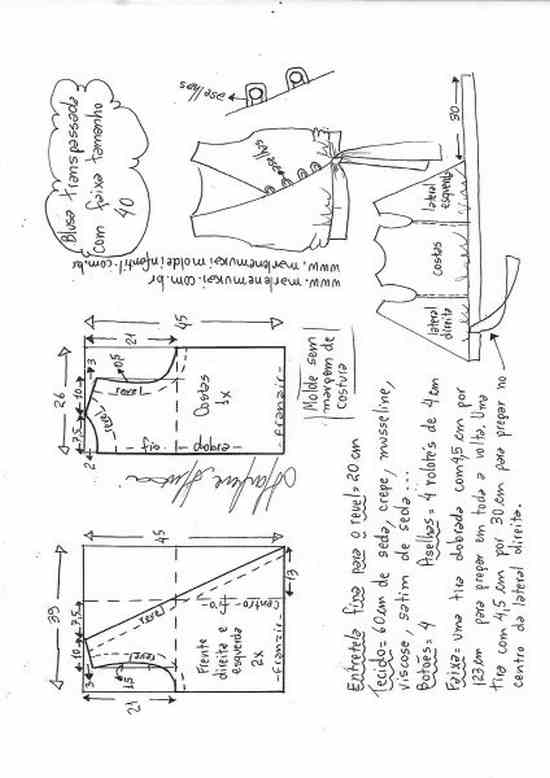 Blusa Transpassada
com faixa tamanho
40
aselhas
aselhas
www.marlenemukai.com.br
www.marlenemukaimoldeinfantil.com.br
30
lateral
direita
costas
lateral
esquerda
26
7,5
10
3
2
0,5
21
45
revel
revel
Costas
1x
dobra
fio
-franzir-
Molde sem
margem de
costura
Marlene Mukai
39
10
7,5
3
1,5
21
45
13
revel
revel
centro
fio
Frente
direita e
esquerda
2x
-franzir-
Entretela fina para o revel= 20 cm
Tecido= 60 cm de seda, crepe, musseline,
viscose, satim de seda...
Botões= 4 Aselhas= 4 rolotês de 4 cm
Faixa= uma tira dobrada com 4,5 cm por
123 cm para pregar em toda a volta. Uma
tira com 4,5 cm por 30 cm para pregar no
centro da lateral direita.